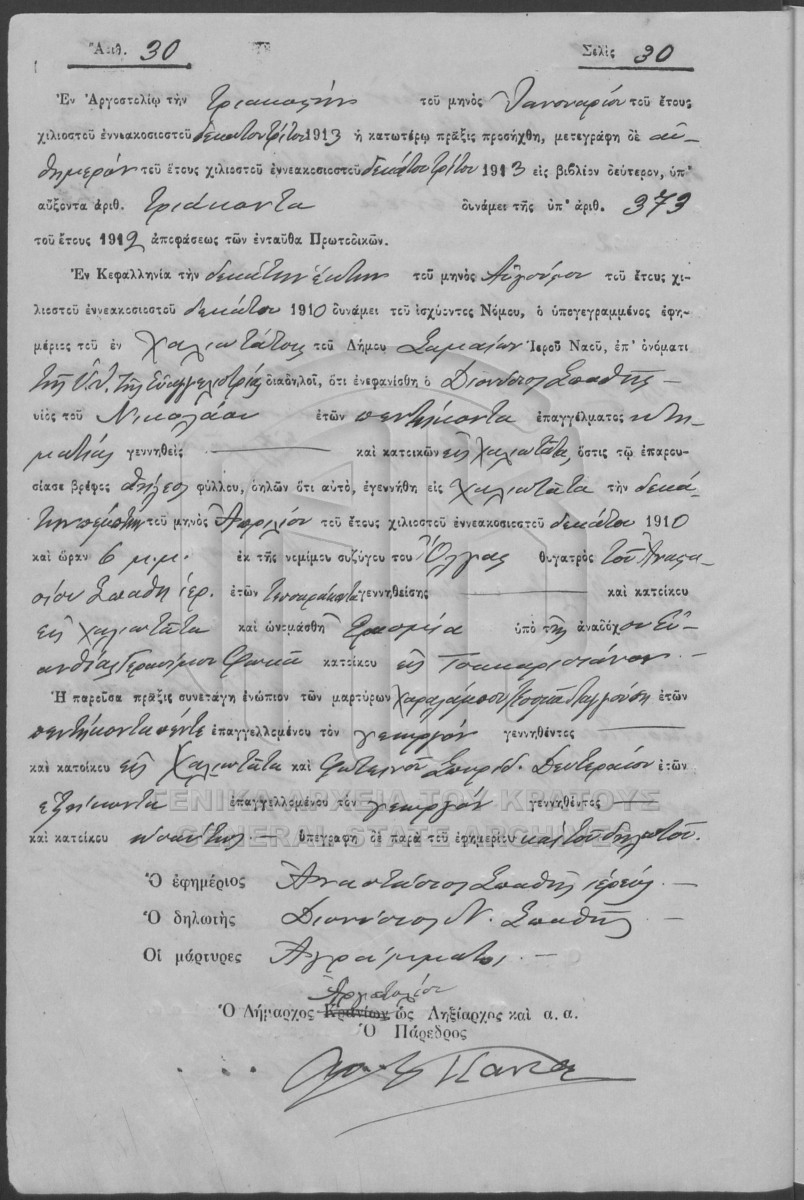 Ἀριθ. 30 Σελὶς 30
Ἐν Ἀργοστολίῳ τὴν τριακοστὴν τοῦ μηνὸς Ἰανουαρίου τοῦ ἔτους
χιλιοστοῦ ἐννεακοσιοστοῦ δεκάτου τρίτου 1913 ἡ κατωτέρω πρᾶξις προσήχθη, μετεγράφη δὲ αὐ-
θημερὸν τοῦ ἔτους χιλιοστοῦ ἐννεακοσιοστοῦ δεκάτου τρίτου 1913 εἰς βιβλίον δεύτερον, ὑπ'
αὔξοντα ἀριθ. τριάκοντα δυνάμει τῆς ὑπ' ἀριθ. 373
τοῦ ἔτους 1912 ἀποφάσεως τῶν ἐνταῦθα Πρωτοδικῶν.
Ἐν Κεφαλληνίᾳ τὴν δεκάτην ἕκτην τοῦ μηνὸς Αὐγούστου τοῦ ἔτους χι-
λιοστοῦ ἐννεακοσιοστοῦ δεκάτου 1910 δυνάμει τοῦ ἰσχύοντος Νόμου, ὁ ὑπογεγραμμένος ἐφη-
μέριος τοῦ ἐν Χαλιωτάτοις τοῦ Δήμου Σαμαίων Ἱεροῦ Ναοῦ, ἐπ' ὀνόματι
τῆς Υ. Θ. τῆς Εὐαγγελιστρίας διαδηλοῖ, ὅτι ἐνεφανίσθη ὁ Διονύσιος Σπαθῆς –
υἱὸς τοῦ Νικολάου ἐτῶν πεντήκοντα ἐπαγγέλματος κτη-
ματίας γεννηθεὶς — καὶ κατοικῶν εἰς Χαλιωτάτα, ὅστις τῷ ἐπαρου-
σίασε βρέφος θήλεος φύλλου, δηλῶν ὅτι αὐτὸ, ἐγεννήθη εἰς Χαλιωτάτα τὴν δεκά-
την πέμπτην τοῦ μηνὸς Ἀπριλίου τοῦ ἔτους χιλιοστοῦ ἐννεακοσιοστοῦ δεκάτου 1910
καὶ ὥραν 6 μ.μ. ἐκ τῆς νομίμου συζύγου του Ὄλγας θυγατρὸς τοῦ Ἀναστα-
σίου Σπαθῆ ἱερ. ἐτῶν τεσσαράκοντα γεννηθείσης — καὶ κατοίκου
εἰς Χαλιωτάτα καὶ ὠνομάσθη Ἐρασμία ὑπὸ τῆς ἀναδόχου Εὐ-
ανθίας Γερασίμου Φωκᾶ κατοίκου εἰς –
Ἡ παροῦσα πρᾶξις συνετάγη ἐνώπιον τῶν μαρτύρων Χαραλάμπου ἐτῶν
πεντήκοντα πέντε ἐπαγγελλομένου τὸν γεωργὸν γεννηθέντος —
καὶ κατοίκου εἰς Χαλιωτάτα καὶ Φωτεινοῦ Σπυρίδ. Δευτεραίου ἐτῶν
ἑξήκοντα ἐπαγγελλομένου τὸν γεωργὸν γεννηθέντος —
καὶ κατοίκου ὡσαύτως – ὑπεγράφη δὲ παρὰ τοῦ ἐφημερίου καὶ τοῦ δηλωτοῦ.
ΓΕΝΙΚΑ ΑΡΧΕΙΑ ΤΟΥ ΚΡΑΤΟΥΣ
GENERAL STATE ARCHIVES
Ὁ ἐφημέριος Ἀναστάσιος Σπαθῆς ἱερεύς. –
Ὁ δηλωτὴς Διονύσιος Ν. Σπαθῆς –
Οἱ μάρτυρες Ἀγράμματοι. –
Ἀργοστολίου
Ὁ Δήμαρχος Κρανίων ὡς Ληξίαρχος καὶ α. α.
Ὁ Πάρεδρος